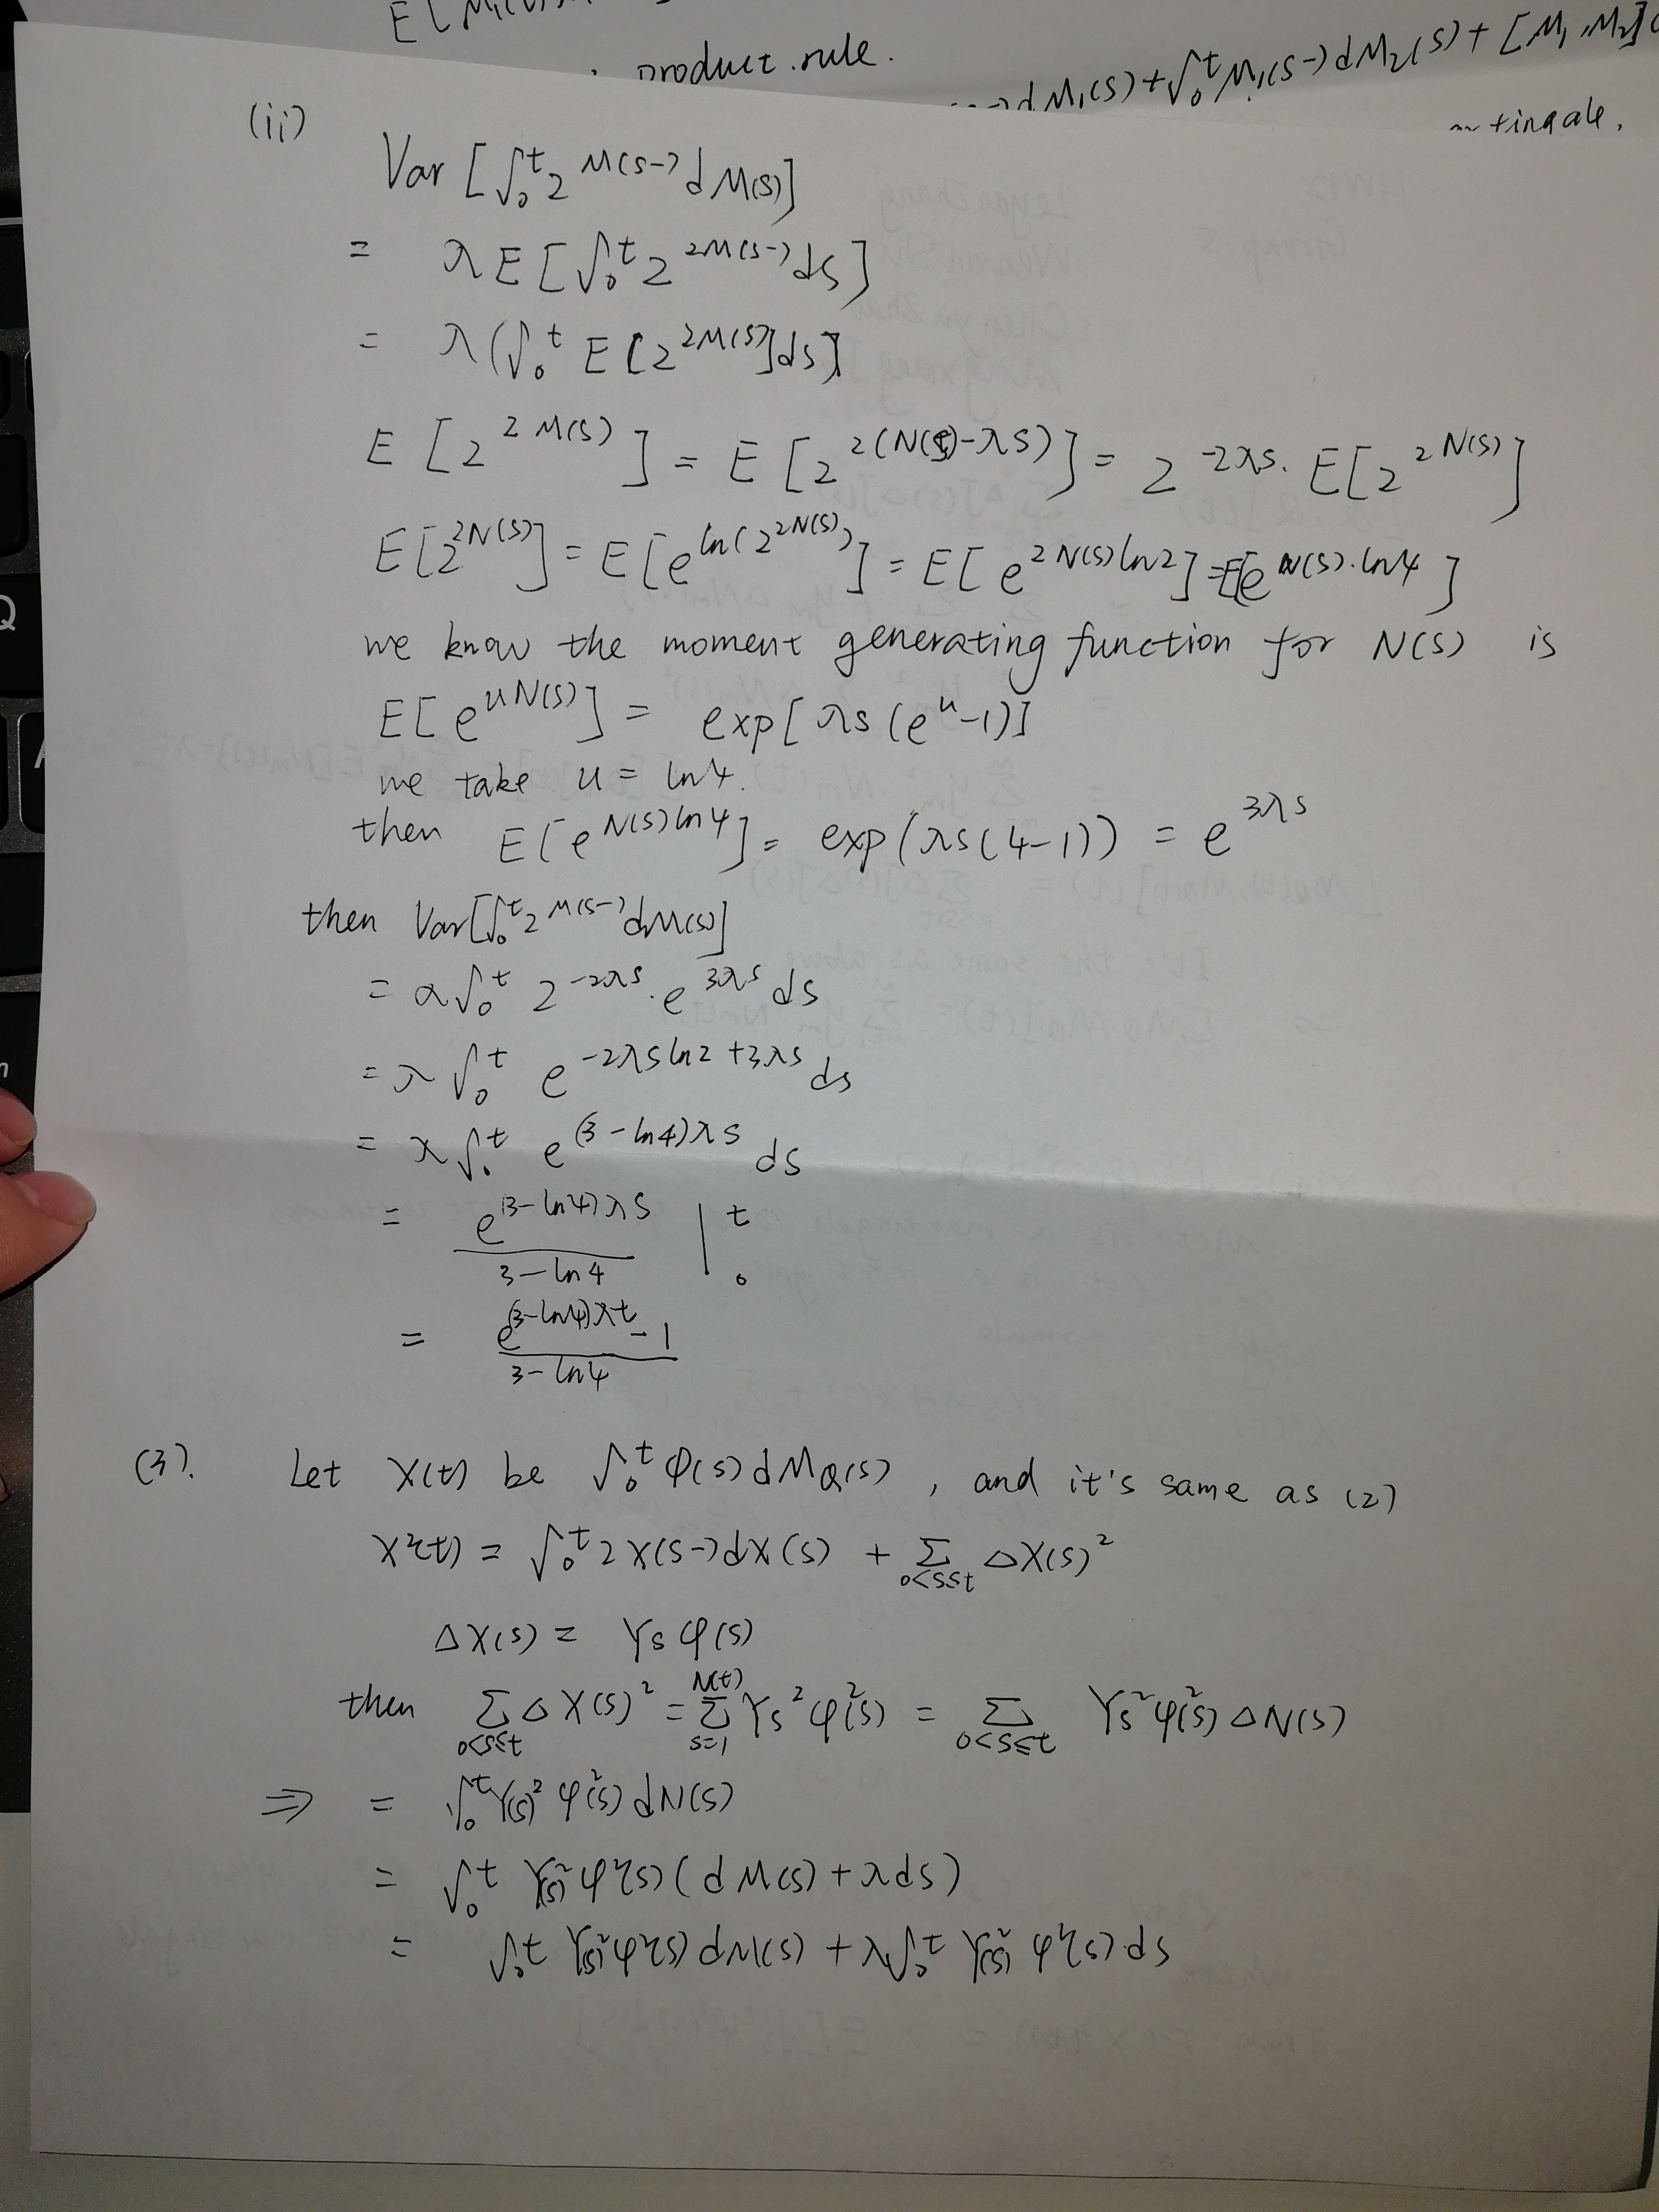 E[M₁(
product rule.
dM₁(s)+∫₀ᵗM₁(s-)dM₂(s)+[M₁,M₂](
tingale.
(ii)
Var[∫₀ᵗ2^{M(s-)}dM(s)]
= λE[∫₀ᵗ2^{2M(s-)}ds]
= λ(∫₀ᵗE[2^{2M(s)}]ds)
E[2^{2M(s)}] = E[2^{2(N(s)-λs)}] = 2^{-2λs}·E[2^{2N(s)}]
E[2^{2N(s)}] = E[e^{ln(2^{2N(s)})}] = E[e^{2N(s)ln2}] = E[e^{N(s)·ln4}]
we know the moment generating function for N(s) is
E[e^{uN(s)}] = exp[λs(e^u-1)]
we take u = ln4.
then E[e^{N(s)ln4}] = exp(λs(4-1)) = e^{3λs}
then Var[∫₀ᵗ2^{M(s-)}dM(s)]
= λ∫₀ᵗ 2^{-2λs}·e^{3λs}ds
= λ∫₀ᵗ e^{-2λsln2+3λs}ds
= λ∫₀ᵗ e^{(3-ln4)λs}ds
= e^{(3-ln4)λs}/(3-ln4) |₀ᵗ
= (e^{(3-ln4)λt}-1)/(3-ln4)
(3). Let X(t) be ∫₀ᵗφ(s)dM_Q(s), and it's same as (2)
X²(t) = ∫₀ᵗ2X(s-)dX(s) + Σ_{0<s≤t} ΔX(s)²
ΔX(s) = Y_s φ(s)
then Σ_{0<s≤t} ΔX(s)² = Σ_{s=1}^{N(t)} Y_s²φ²(s) = Σ_{0<s≤t} Y_s²φ²(s)ΔN(s)
⇒ = ∫₀ᵗY(s)²φ²(s)dN(s)
= ∫₀ᵗ Y(s)²φ²(s)(dM(s)+λds)
= ∫₀ᵗ Y(s)²φ²(s)dM(s) + λ∫₀ᵗ Y(s)²φ²(s)ds